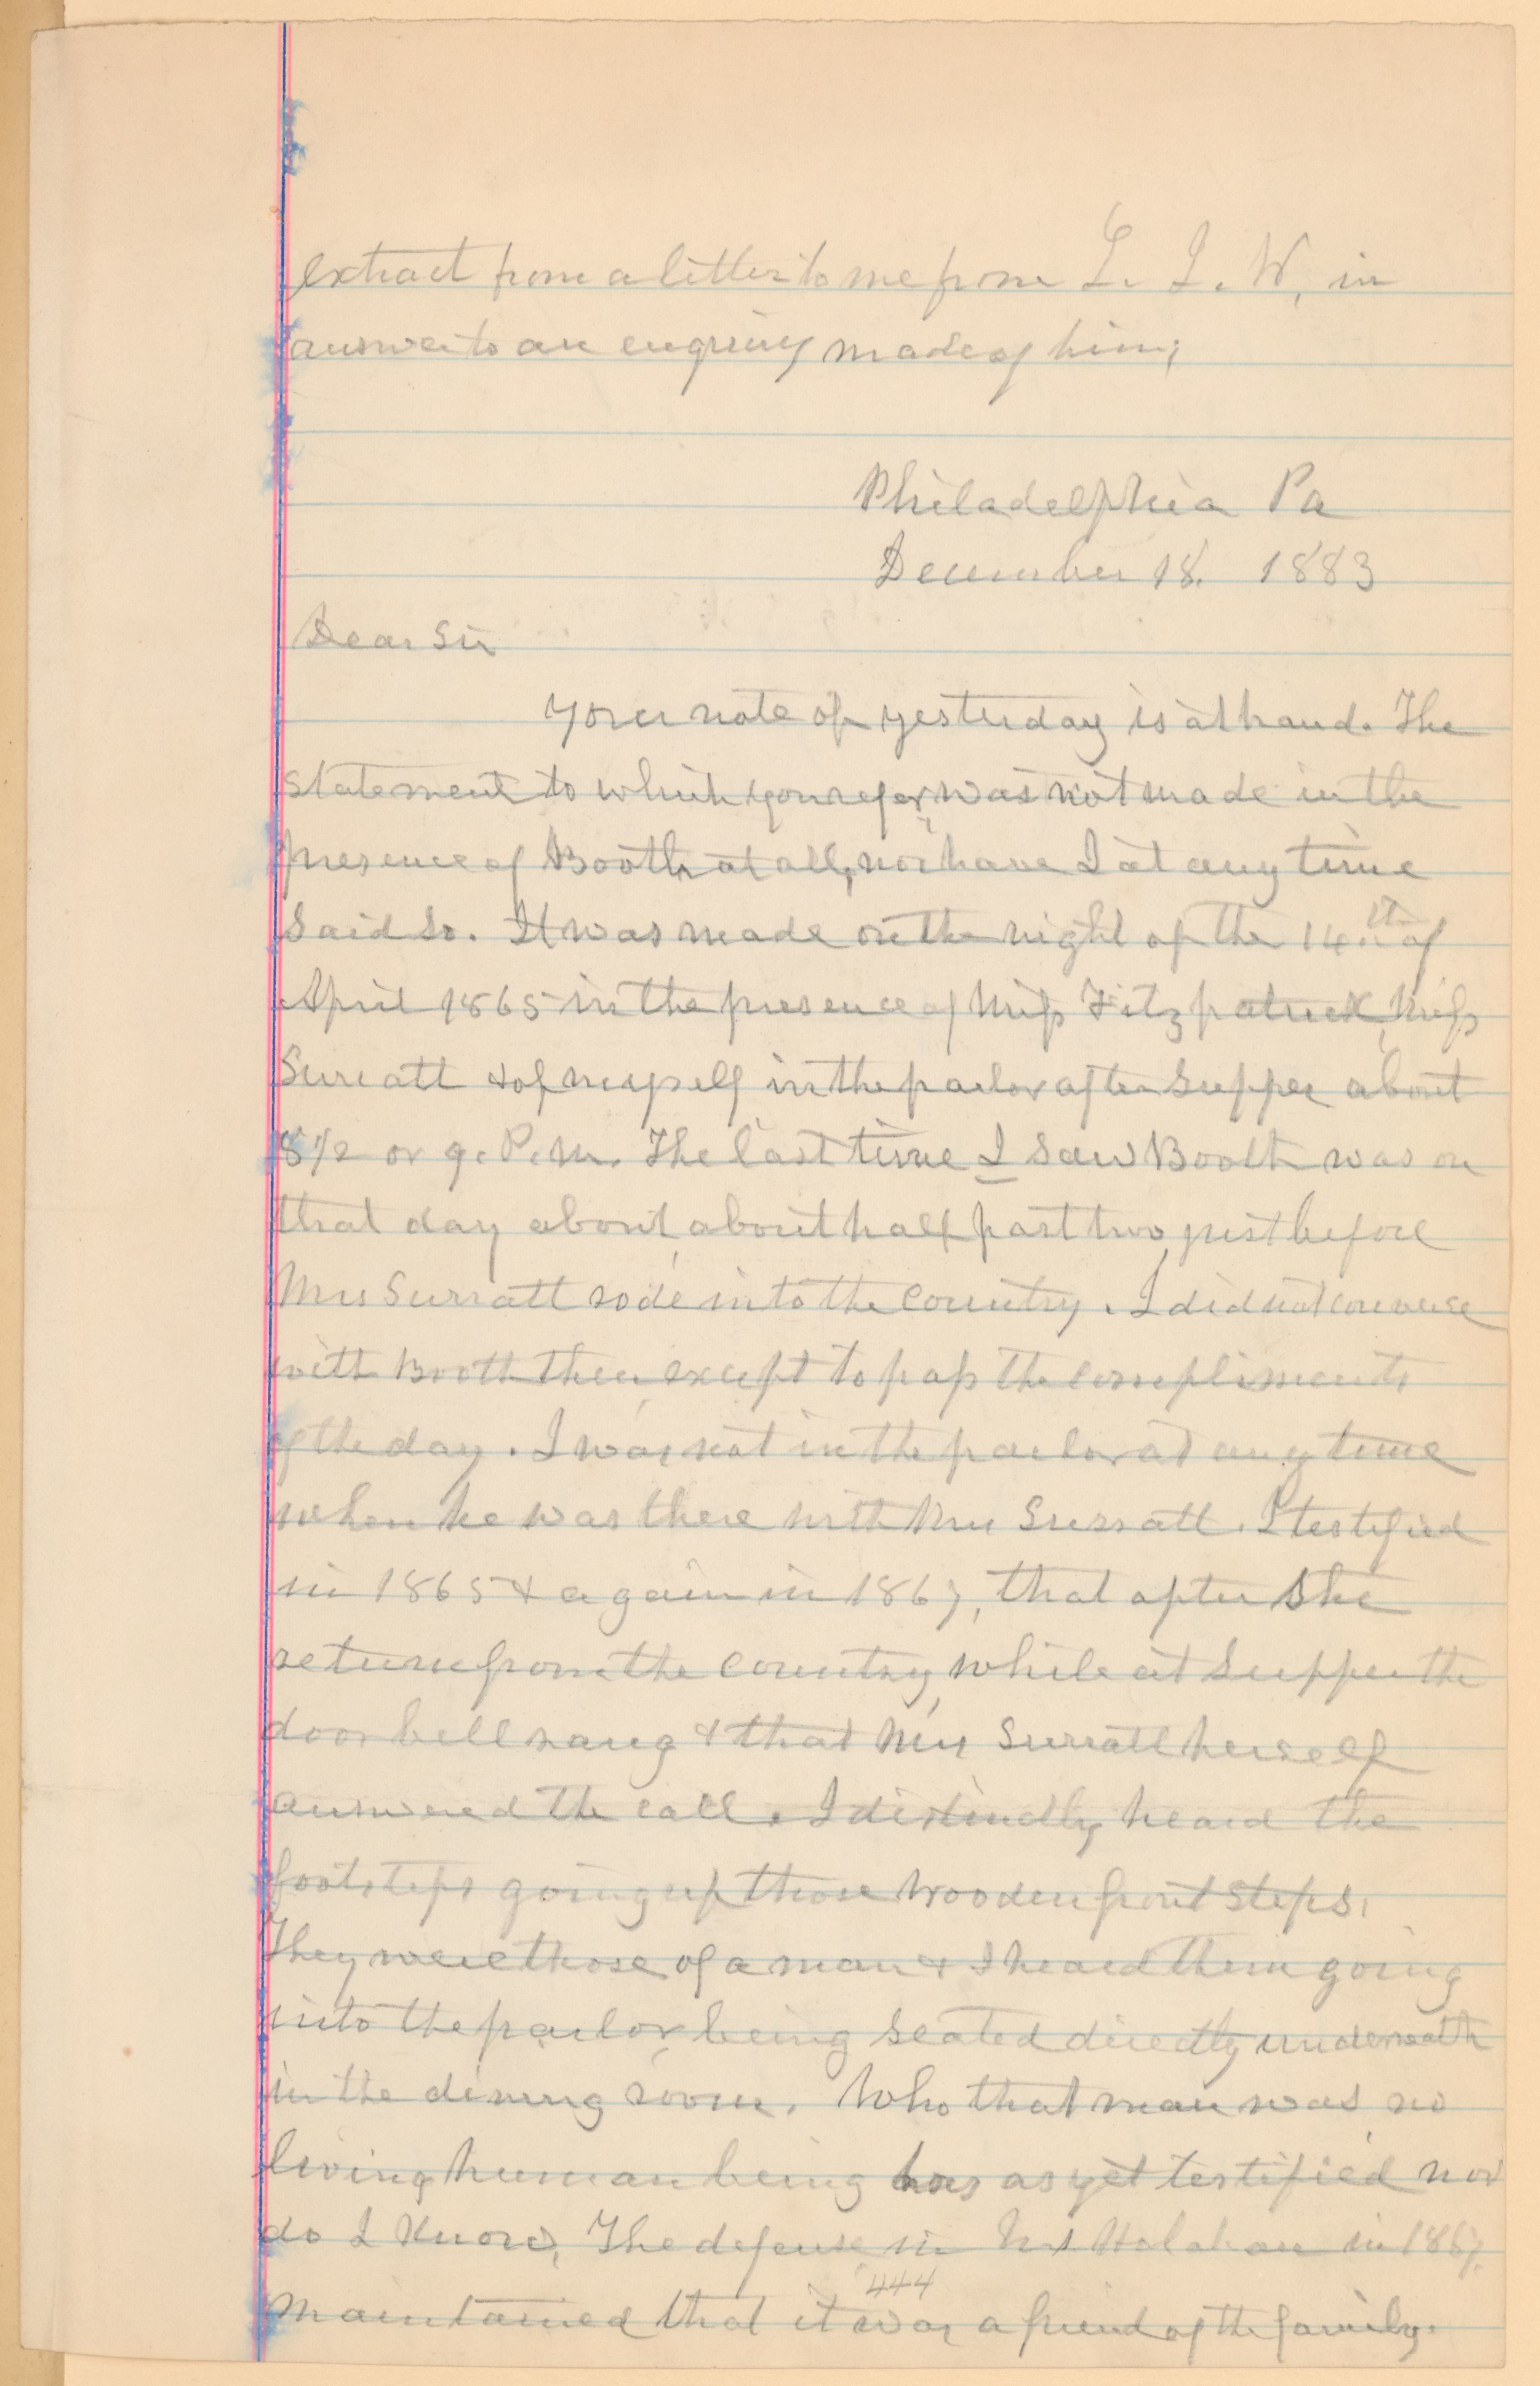 extract from a letter to me from L. J. W, in
answer to an enquiry made of him;
Philadelphia Pa
December 18. 1883
Dear Sir
Your note of yesterday is at hand. The
statement to which you refer, was not made in the
presence of Booth at all, nor have I at any time
said so. It was made on the night of the 14th of
April 1865 in the presence of Miss Fitzpatrick, Miss
Surratt & of myself in the parlor after supper about
8 1/2 or 9. P.M. The last time I saw Booth was on
that day about about half past two, just before
Mrs Surratt rode into the country. I did not converse
with Booth then except to pass the compliments
of the day. I was not in the parlor at any time
when he was there with Mrs Surratt. I testified
in 1865 & again in 1867, that after she
return from the country, while at supper the
door bell rang & that Mrs Surratt herself
answered the call. I distinctly heard the
footsteps going up those wooden front steps.
They were those of a man & I heard them going
into the parlor being seated directly underneath
in the dining room. Who that man was, no
living human being has as yet testified nor
do I know. The defense in Mrs Holahan in 1867.
444
maintained that it was a friend of the family.